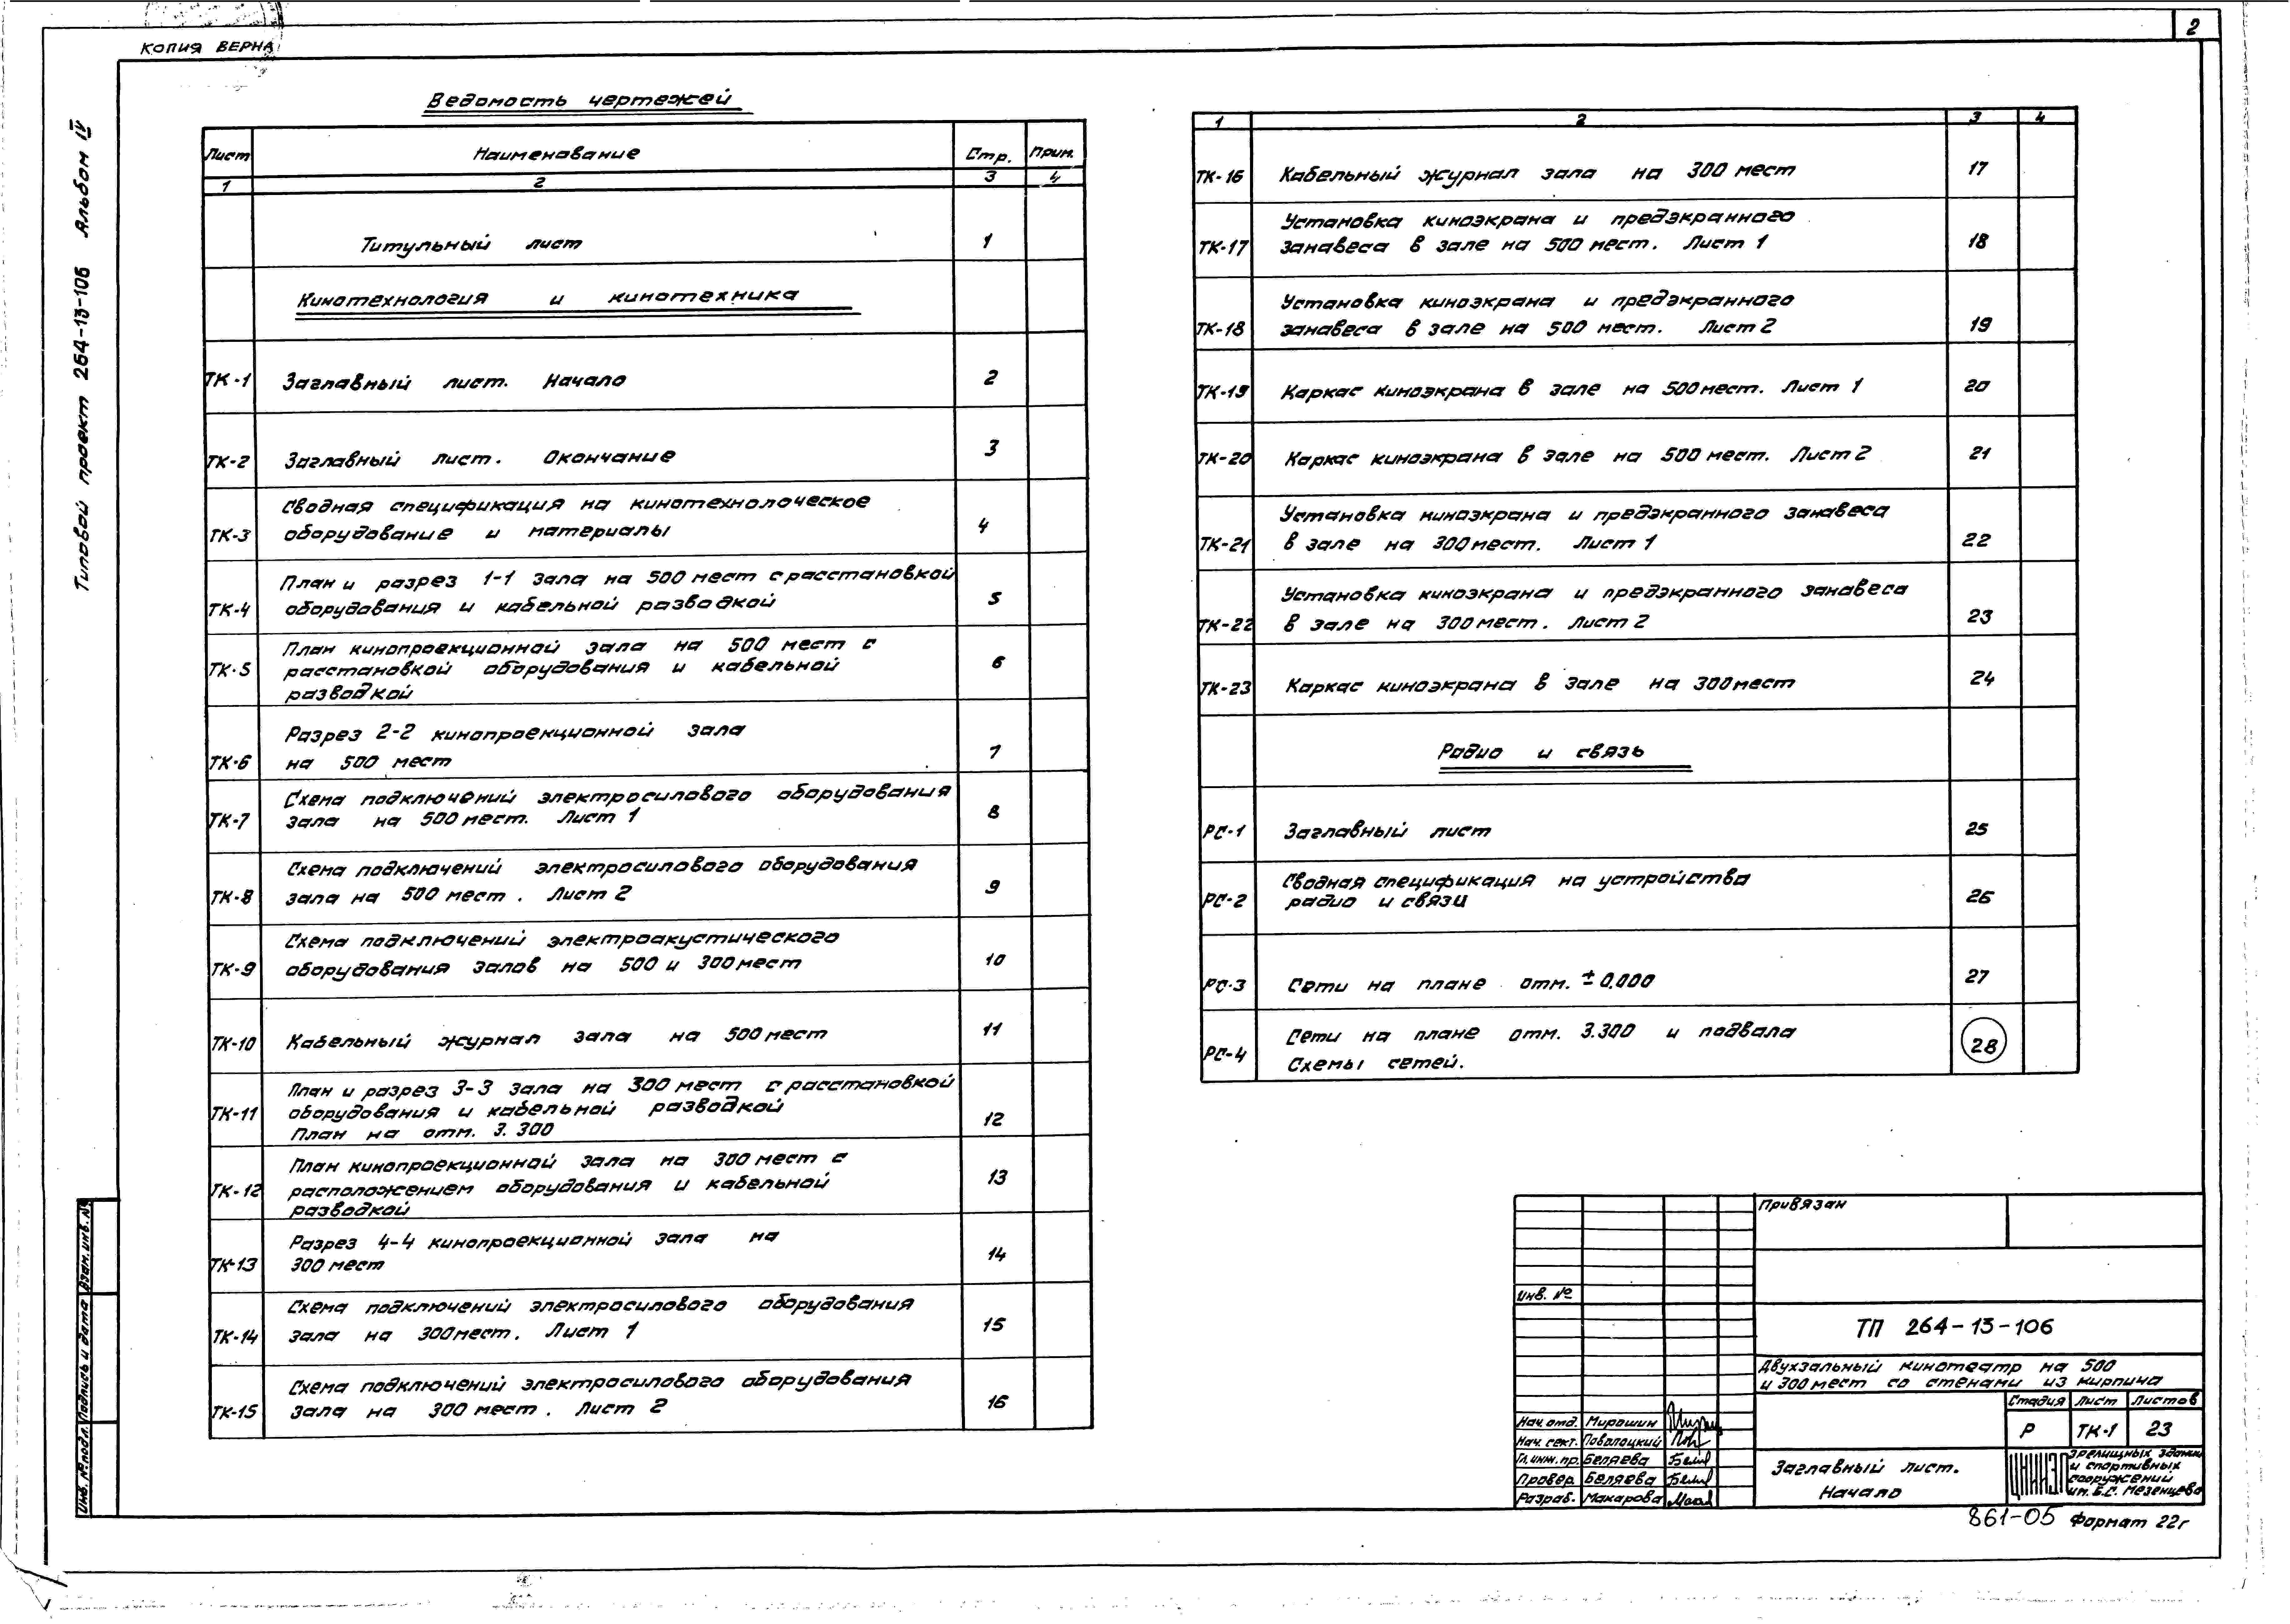 2
КОПИЯ ВЕРНА
Типовой проект 264-13-106 Альбом IV
Ведомость чертежей
Лист Наименование Стр. Прим.
1 2 3 4
Титульный лист 1
Кинотехнология и кинотехника
ТК-1 Заглавный лист. Начало 2
ТК-2 Заглавный лист. Окончание 3
Сводная спецификация на кинотехнолоческое
ТК-3 оборудование и материалы 4
План и разрез 1-1 зала на 500 мест с расстановкой
ТК-4 оборудования и кабельной разводкой 5
План кинопроекционной зала на 500 мест с
ТК-5 расстановкой оборудования и кабельной 6
разводкой
Разрез 2-2 кинопроекционной зала
ТК-6 на 500 мест 7
Схема подключений электросилового оборудования
ТК-7 зала на 500 мест. Лист 1 8
Схема подключений электросилового оборудования
ТК-8 зала на 500 мест. Лист 2 9
Схема подключений электроакустического
ТК-9 оборудования залов на 500 и 300 мест 10
ТК-10 Кабельный журнал зала на 500 мест 11
План и разрез 3-3 зала на 300 мест с расстановкой
ТК-11 оборудования и кабельной разводкой
План на отм. 3.300 12
План кинопроекционной зала на 300 мест с
ТК-12 расположением оборудования и кабельной 13
разводкой
Разрез 4-4 кинопроекционной зала на
ТК-13 300 мест 14
Схема подключений электросилового оборудования
ТК-14 зала на 300 мест. Лист 1 15
Схема подключений электросилового оборудования
ТК-15 зала на 300 мест. Лист 2 16
1 2 3 4
ТК-16 Кабельный журнал зала на 300 мест 17
Установка киноэкрана и предэкранного
ТК-17 занавеса в зале на 500 мест. Лист 1 18
Установка киноэкрана и предэкранного
ТК-18 занавеса в зале на 500 мест. Лист 2 19
ТК-19 Каркас киноэкрана в зале на 500 мест. Лист 1 20
ТК-20 Каркас киноэкрана в зале на 500 мест. Лист 2 21
Установка киноэкрана и предэкранного занавеса
ТК-21 в зале на 300 мест. Лист 1 22
Установка киноэкрана и предэкранного занавеса
ТК-22 в зале на 300 мест. Лист 2 23
ТК-23 Каркас киноэкрана в зале на 300 мест 24
Радио и связь
РС-1 Заглавный лист 25
Сводная спецификация на устройства
РС-2 радио и связи 26
РС-3 Сети на плане отм. ±0.000 27
Сети на плане отм. 3.300 и подвала
РС-4 Схемы сетей. 28
Привязан
Инв. №
ТП 264-13-106
Двухзальный кинотеатр на 500
и 300 мест со стенами из кирпича
Стадия Лист Листов
Р ТК-1 23
Нач. отд. Мирошин
Нач. сект. Поволоцкий
Гл. инж. пр. Беляева
Провер. Беляева
Разраб. Макарова
Заглавный лист.
Начало
ЦНИИЭП
зрелищных зданий
и спортивных
сооружений
им. Б.С. Мезенцева
861-05 Формат 22г
Взам. инв. №
Подпись и дата
Инв. № подл.